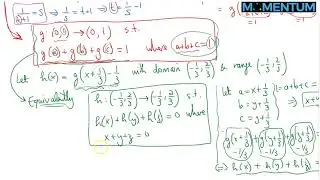 MOMENTUM
1/(1/t + 1) = 1/3 => 1/t = t-1 => (t) = 1
g (0,1) → (0,1) s.t.
g(a) + g(b) + g(c) = 1 where a+b+c = 1
Let h(x) = g(x + 1/3) - 1/3 with domain (-1/3, 2/3) & range (-1/3, 2/3)
Equivalently
h: (-1/3, 2/3) → (-1/3, 2/3) s.t.
h(x) + h(y) + h(z) = 0 where
x+y+z = 0
Let
a = x + 1/3
b = y + 1/3
c = z + 1/3
g(x + 1/3) + g(y + 1/3) + g(z + 1/3)
-1/3 -1/3 -1/3
<=> h(x) + h(y) + h(z) =